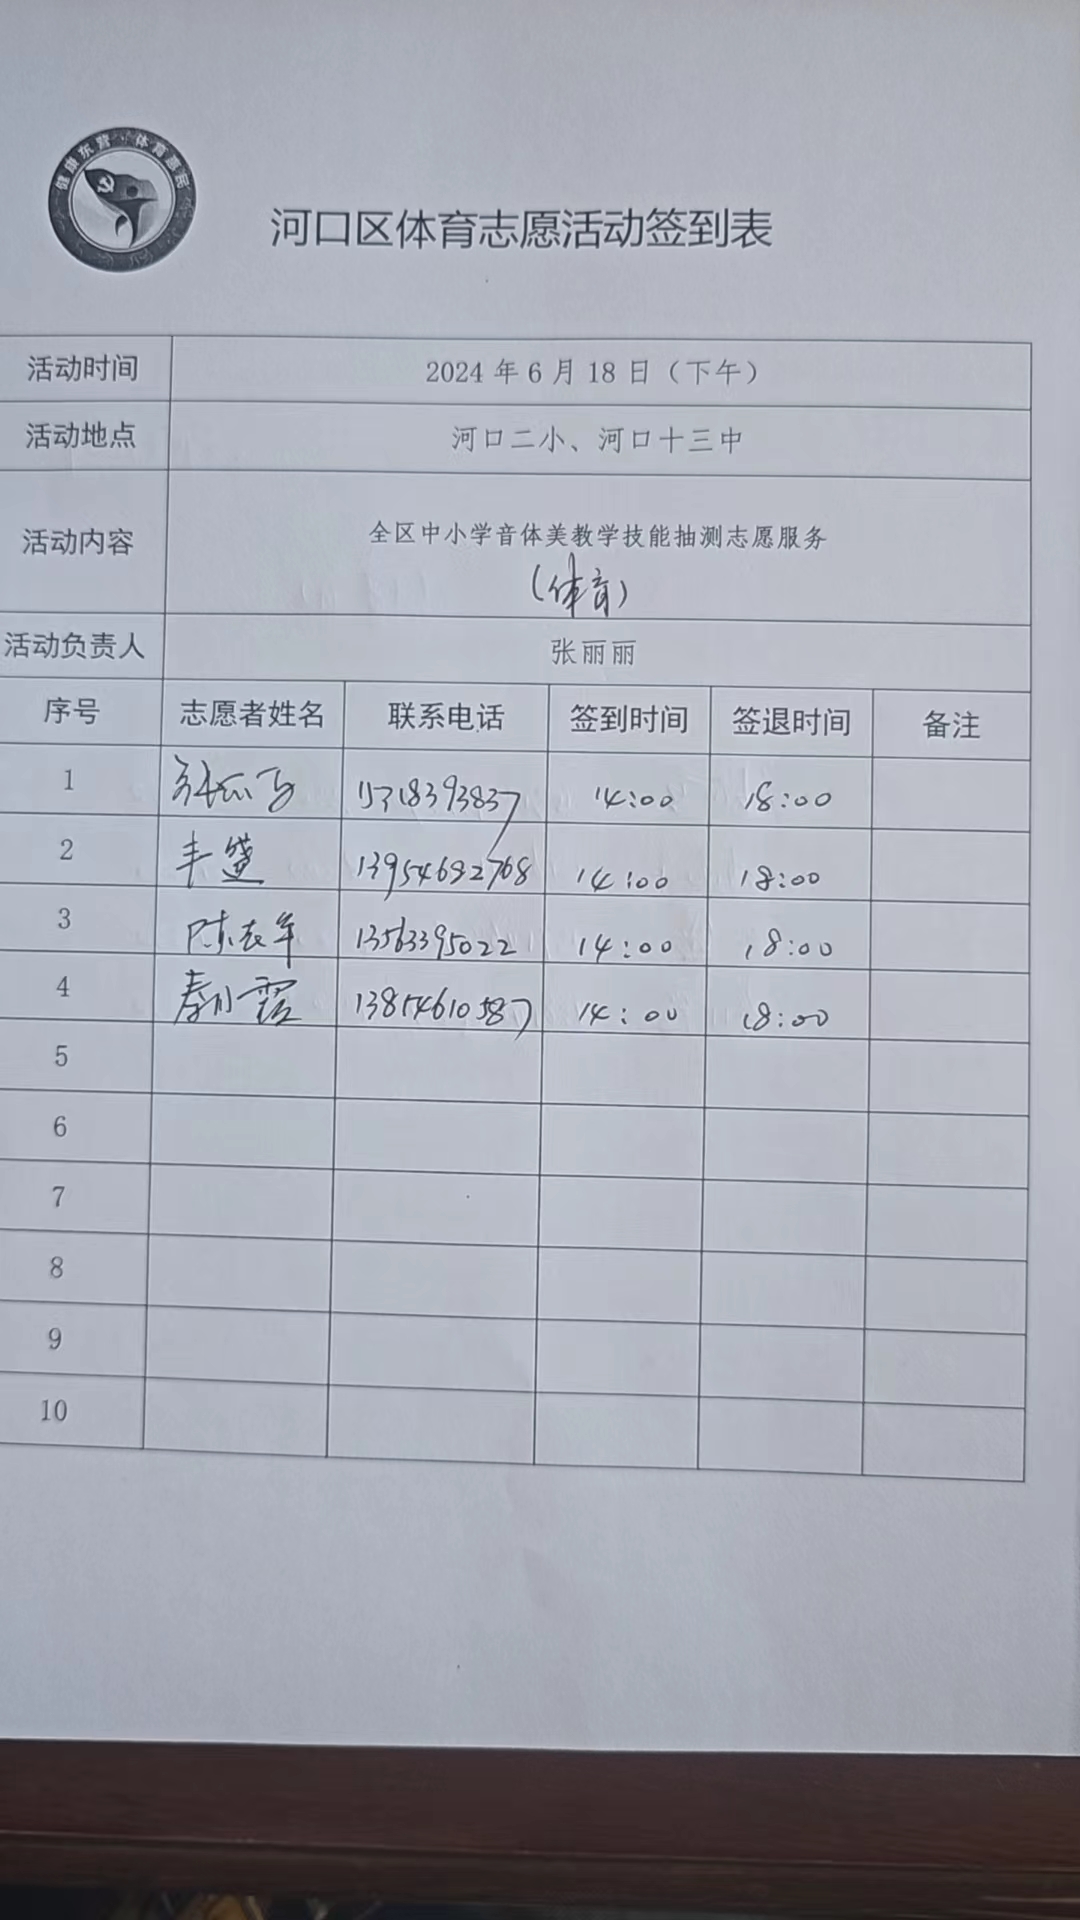 健康东营·体育惠民
河口区体育志愿活动签到表
活动时间 2024 年 6 月 18 日（下午）
活动地点 河口二小、河口十三中
活动内容 全区中小学音体美教学技能抽测志愿服务
（体育）
活动负责人 张丽丽
序号 志愿者姓名 联系电话 签到时间 签退时间 备注
1 14:00 18:00
2 13954692768 14:00 18:00
3 13563395022 14:00 18:00
4 13854610587 14:00 18:00
5
6
7
8
9
10